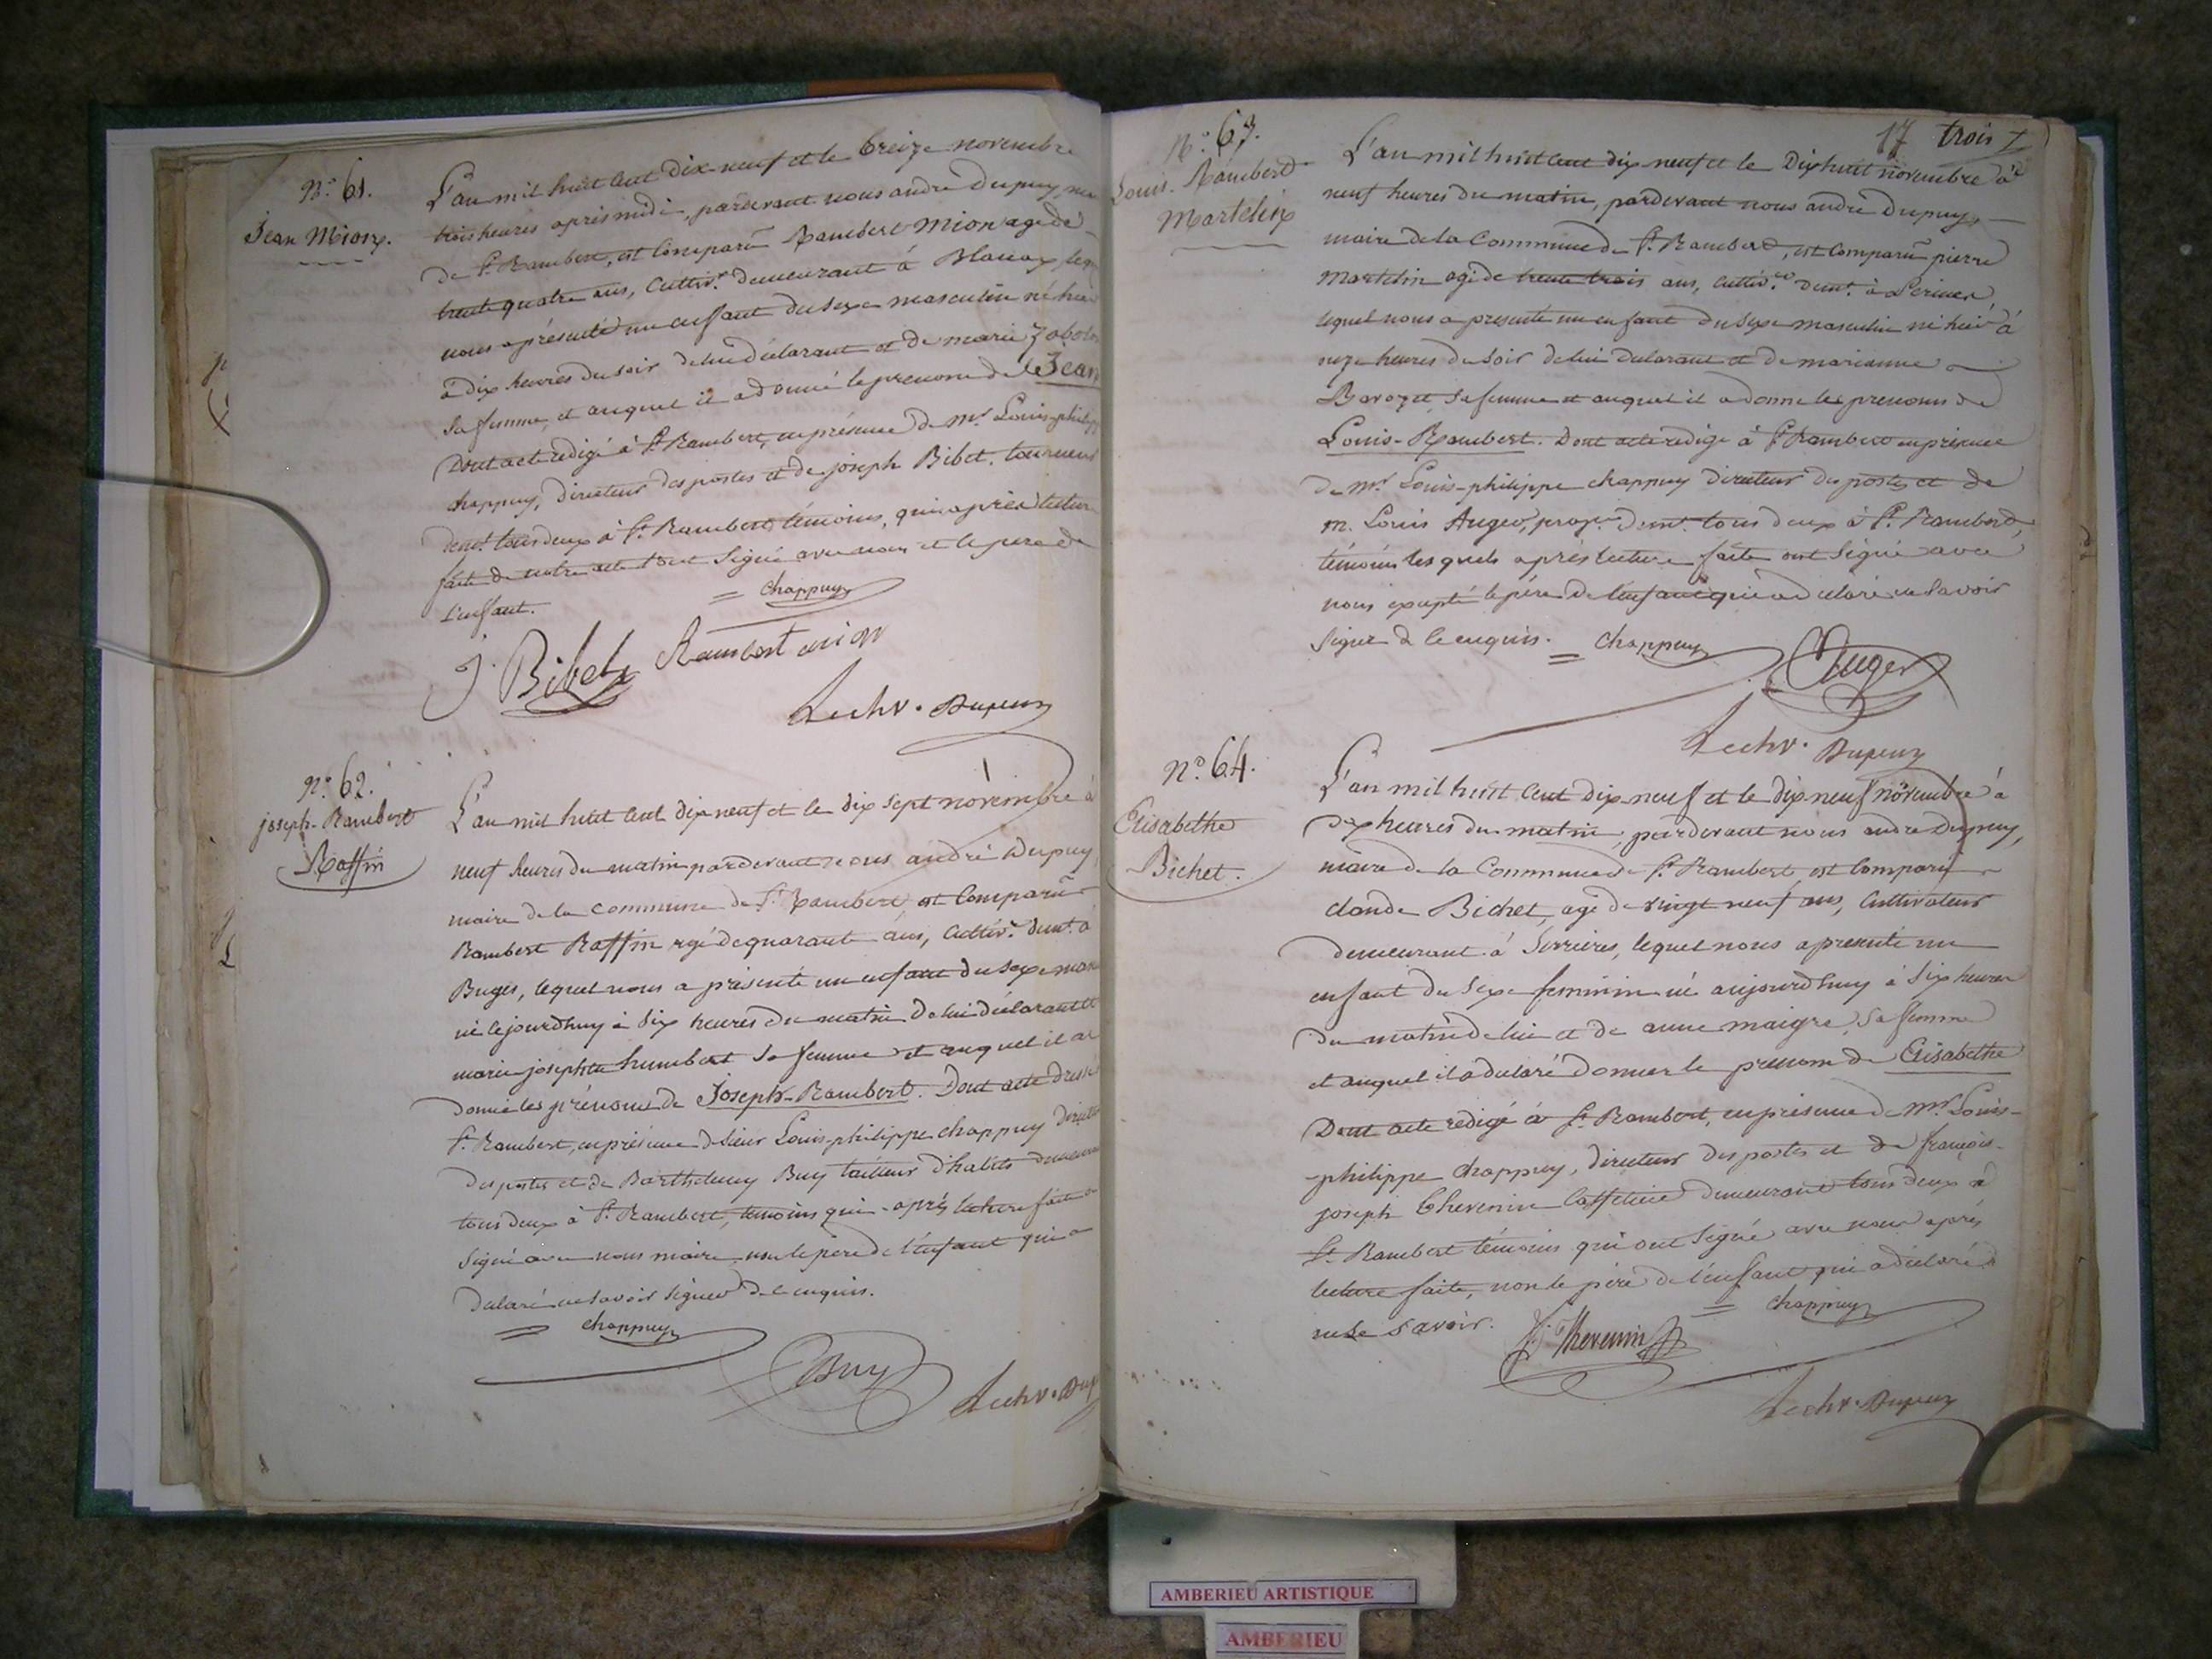 N.° 61.
Jean Mion.
L'an mil huit cent dix-neuf et le treize novembre
trois heures après midi, pardevant nous andré Dupuy
de St. Rambert, est Comparu Rambert Mion agé de
trente quatre ans, Cultivr. demeurant à Blanaz
nous a présenté un enfant du sexe masculin né hier
à dix heures du soir de lui déclarant et de marie
sa femme, et auquel il a donné le prenom de Jean
Dont acte redigé à St. Rambert, en présence de Mr. Louis-philippe
chappuy, directeur des postes et de joseph Bibet,
demt. tous deux à St. Rambert témoins, qui après lecture
faite de notre acte l'ont Signé avec nous et le pere de
l'enfant.
chappuy
J. Bibet Rambert mion
Le chr. Dupuy
N.° 62.
joseph-Rambert
Raffin
L'an mil huit cent dix neuf et le dix sept novembre à
neuf heures du matin pardevant nous andré Dupuy,
maire de la commune de St. Rambert est Comparu
Rambert Raffin agé de quarante ans, Cultivr. demt. à
Buges, lequel nous a présenté un enfant du sexe
né cejourdhuy à Six heures du matin De lui déclarant et
marie josephte humbert sa femme et auquel il a
donné les prénoms de Joseph-Rambert. Dont acte dressé
St. Rambert, en présence de Sieur Louis-philippe chappuy
des postes et de Barthelemy Buy tailleur d'habits
tous deux à St. Rambert, temoins qui après lecture faite
Signé avec nous maire non le pere de l'enfant qui a
Déclaré ne savoir Signer de ce enquis.
chappuy
Buy
Le chr. Dup
17 trois
N.° 63.
Louis-Rambert
Martelin
L'an mil huit cent dix neuf et le Dix huit novembre à
neuf heures du matin, pardevant nous andré Dupuy,
maire de la Commune de St. Rambert, est Comparu pierre
Martelin agé de trente trois ans, cultivr. demt. à
lequel nous a presenté un enfant du sexe masculin né hier à
onze heures du soir de lui déclarant et de marianne
Bavozet sa femme et auquel il a donné les prenoms de
Louis-Rambert. Dont acte redigé à St. Rambert en présence
de Mr. Louis-philippe chappuy Directeur des postes et de
M. Louis Auger, propre. demt. tous deux à St. Rambert,
témoins lesquels après lecture faite ont Signé avec
nous excepté le père de l'enfant qui a declaré ne Savoir
Signer de ce enquis.
chappuy
Auger
Le chr. Dupuy
N.° 64.
Elisabethe
Bichet.
L'an mil huit cent dix-neuf et le dix-neuf novembre à
dix heures du matin, pardevant nous andré Dupuy,
maire de la Commune de St. Rambert, est Comparu
claude Bichet, agé de vingt neuf ans, Cultivateur
demeurant à Serrières, lequel nous a presenté un
enfant du Sexe feminin né aujourdhuy à Six heures
du matin de lui et de anne maigre, sa femme
et auquel il a declaré donner le prenom de Elisabethe
Dont acte redigé à St. Rambert, en présence de Mr. Louis-
philippe chappuy, directeur des postes et de françois-
joseph thevenin Caffetier demeurant tous deux à
St. Rambert témoins qui ont Signé avec nous après
lecture faite, non le père de l'enfant qui a declaré
ne le savoir.
chappuy
Thevenin
Le chr. Dupuy
AMBERIEU ARTISTIQUE
AMBERIEU